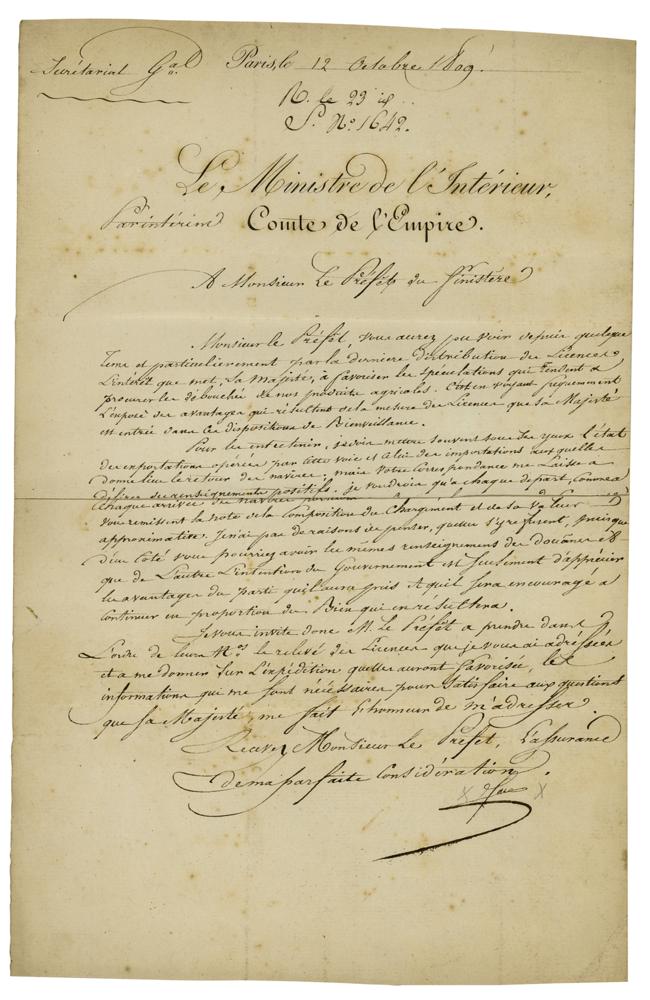 Secrétariat Gal. Paris, le 12 Octobre 1809.
R. le 23
S. No. 1642.
Le Ministre de l'Intérieur,
Par intérim Comte de l'Empire.
A Monsieur Le Préfet du finistère
Monsieur le Préfet, vous aurez pu voir depuis quelque
tems et particulièrement par la derniere distribution des Licences,
L'intérêt que met, Sa Majesté, à favoriser les Spéculations qui tendent à
procurer le débouché de nos produits agricoles. C'est en voyant fréquemment
L'exposé des avantages qui résultent de la mesure des Licences que Sa Majesté
est entrée dans ces dispositions de Bienveillance.
Pour les entretenir, je dois mettre souvent sous Ses yeux l'état
des exportations opérées par cette voie et celui des importations auxquelles
donne lieu le retour des navires. mais votre Correspondance me Laisse à
désirer des renseignemens positifs. je voudrois qu'à chaque départ, comme à
chaque arrivée de navire
vous remissiez la note de la Composition du Chargement et de sa valeur
approximative. Je n'ai pas de raisons de penser, qu'eux s'y refusent, puisque
d'un Côté vous pourriez avoir les mêmes renseignemens des douanes et
que de L'autre L'intention du Gouvernement est Seulement d'apprécier
les avantages du parti qu'il aura pris et qu'il sera encouragé à
Continuer en proportion du Bien qui en résultera.
Je vous invite donc M. Le Préfet à prendre dans
L'ordre de leurs Nos. le relevé des Licences que je vous ai adressées
et a me donner Sur L'expédition qu'elles auront favorisée, les
informations qui me sont nécéssaires pour Satisfaire aux questions
que Sa Majesté me fait l'honneur de m'adresser.
Recevez Monsieur Le Préfet, l'assurance
de ma parfaite Considération.